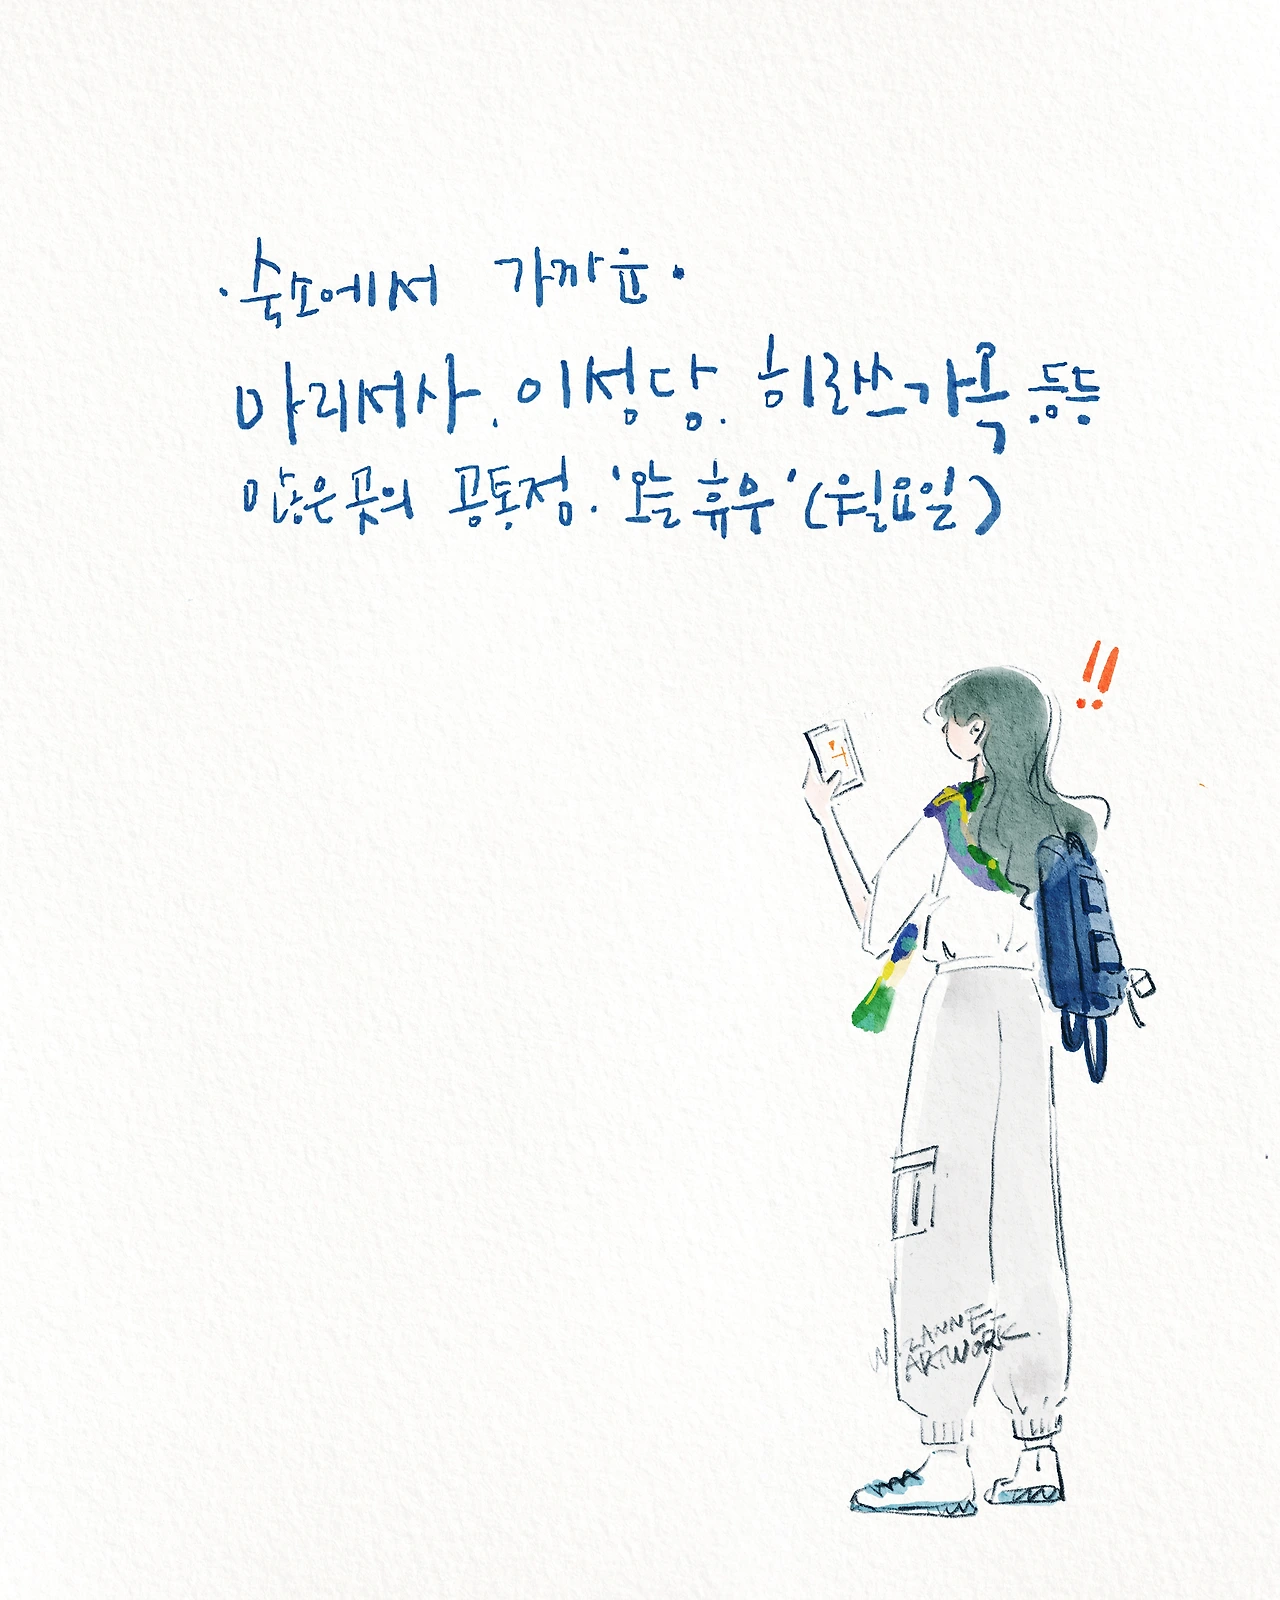 ·숙소에서 가까운·
마리서사. 이성당. 히로쓰가옥 등등
많은 곳의 공통점. '오늘 휴무' (월요일)
!!
ARTWORK.